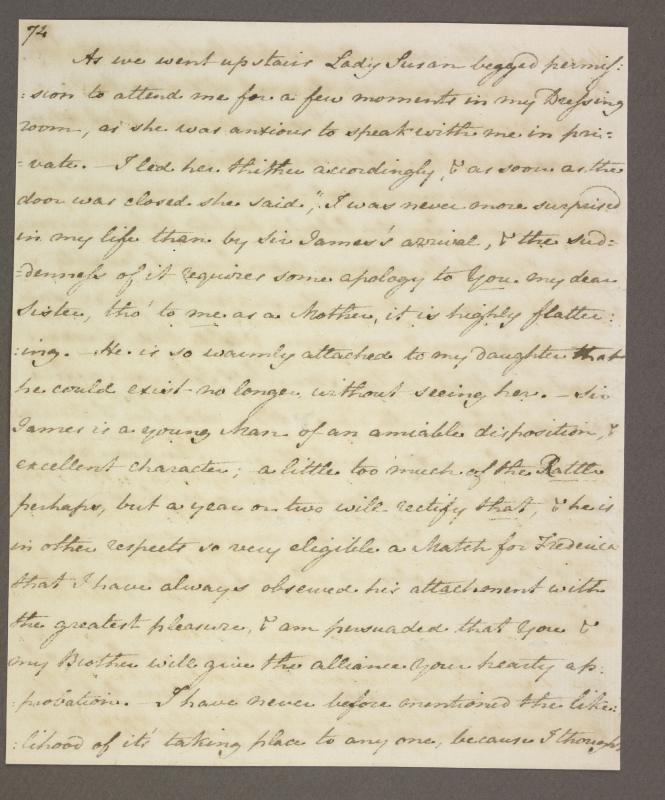 74
As we went upstairs Lady Susan begged permis:
:sion to attend me for a few moments in my Dressing
room, as she was anxious to speak with me in pri=
:vate. — I led her thither accordingly, & as soon as the
door was closed she said, "I was never more surprised
in my life than by Sir James's arrival, & the sud=
=denness of it requires some apology to You my dear
Sister, tho' to me as a Mother, it is highly flatter:
:ing. — He is so warmly attached to my daughter that
he could exist no longer without seeing her. — Sir
James is a young Man of an amiable disposition, &
excellent character; a little too much of the Rattle
perhaps, but a year or two will rectify that, & he is
in other respects so very eligible a Match for Frederica
that I have always observed his attachment with
the greatest pleasure, & am persuaded that You &
my Brother will give the alliance Your hearty ap:
:probation. — I have never before mentioned the like:
:lihood of it's taking place to any one, because I thought